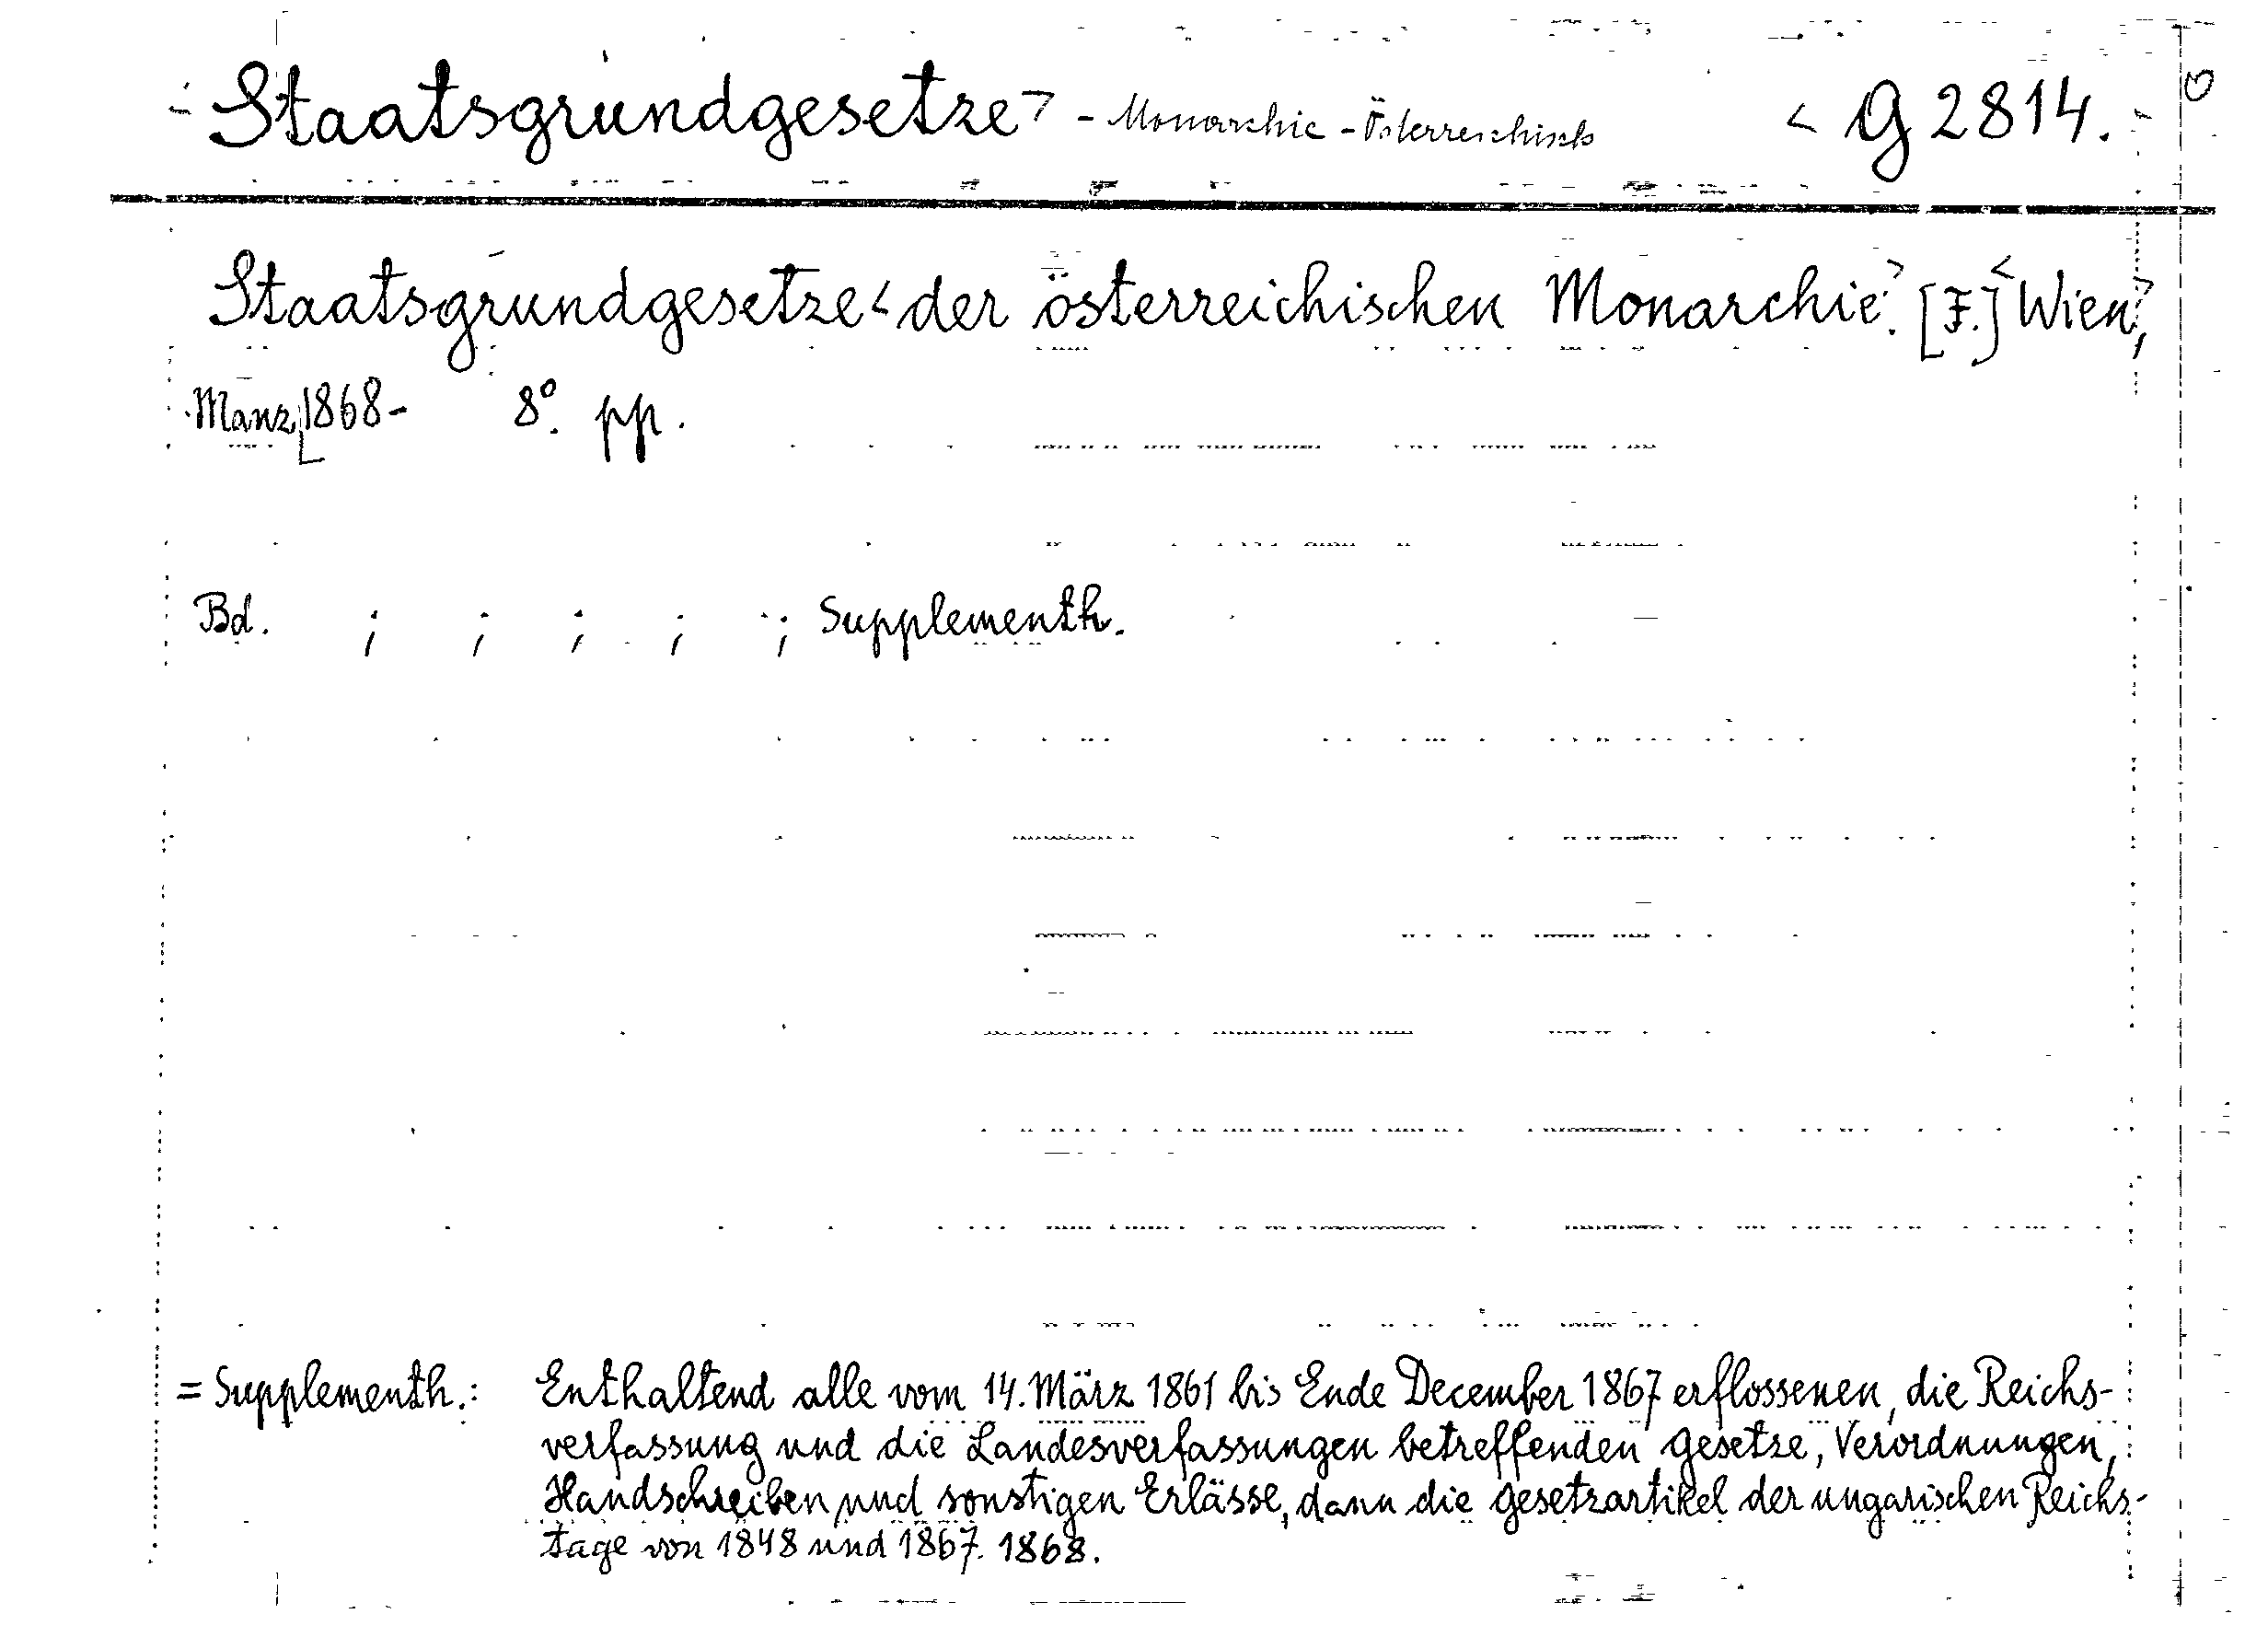 Staatsgrundgesetze> - Monarchie - Österreichisch < G 2814.
Staatsgrundgesetze < der österreichischen Monarchie.> [F.] < Wien>,
Manz, 1868- 8° pp.
Bd. ; ; ; ; ; Supplementh.
= Supplementh.: Enthaltend alle vom 14. März 1861 bis Ende December 1867 erflossenen, die Reichs-
verfassung und die Landesverfassungen betreffenden Gesetze, Verordnungen,
Handschreiben und sonstigen Erlässe, dann die Gesetzartikel der ungarischen Reichs-
tage von 1848 und 1867. 1868.